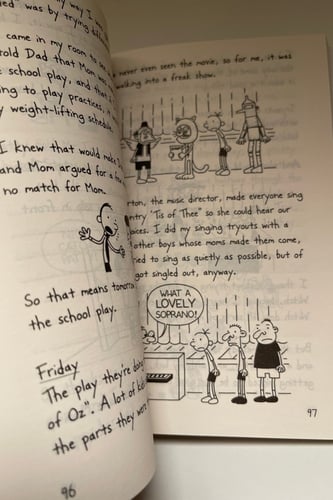 way I
ied" was by trying
came in my room to see
told Dad that Mom was
school play, and that
ing to play practices,
weight-lifting schedule.
I knew that would make
and Mom argued for a
no match for Mom.
So that means tomorrow
the school play.
Friday
The play they're doing
of Oz". A lot of kids
the parts they were
96
never even seen the movie, so for me, it was
walking into a freak show.
rton, the music director, made everyone sing
ntry 'Tis of Thee" so she could hear our
oices. I did my singing tryouts with a
other boys whose moms made them come,
ied to sing as quietly as possible, but of
got singled out, anyway.
WHAT A
LOVELY
SOPRANO!
97